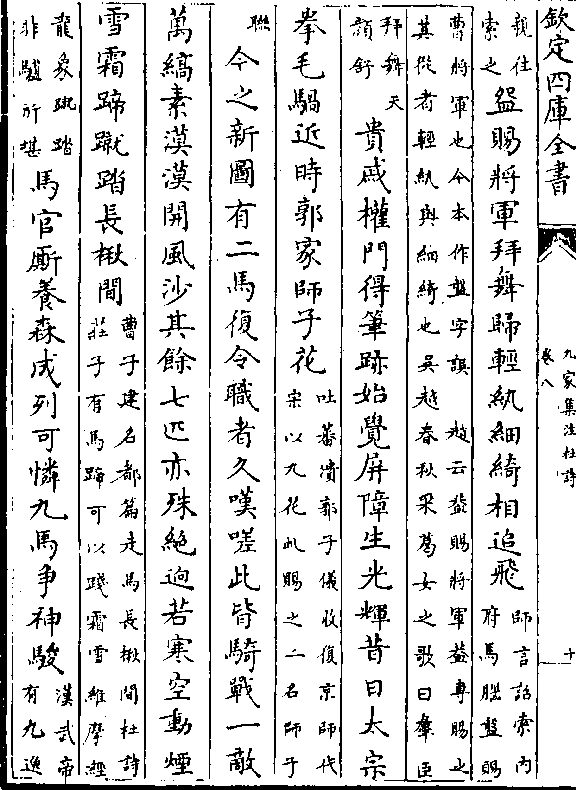 欽定四庫全書
九家集注杜詩
卷八
十
親往
索之
盌賜將軍拜舞歸輕紈細綺相追飛
師言詔索内
府馬腦盤賜
曹將軍也今本作盤字誤 趙云盌賜將軍葢專賜之
其從者輕紈與細綺也吳越春秋采葛女之歌曰羣臣
拜舞天
顔舒
貴戚權門得筆跡始覺屏障生光輝昔日太宗
拳毛騧近時郭家師子花
吐蕃潰郭子儀收復京師代
宗以九花虬賜之二名師子
聯
今之新圖有二馬復令職者久嘆嗟此皆騎戰一敵
萬縞素漠漠開風沙其餘七匹亦殊絶迥若寒空動煙
雪霜蹄蹴踏長楸間
曹子建名都篇走馬長楸間杜詩
莊子有馬蹄可以踐霜雪維摩經
龍象蹴踏
非驢所堪
馬官厮養森成列可憐九馬争神駿
漢武帝
有九逸